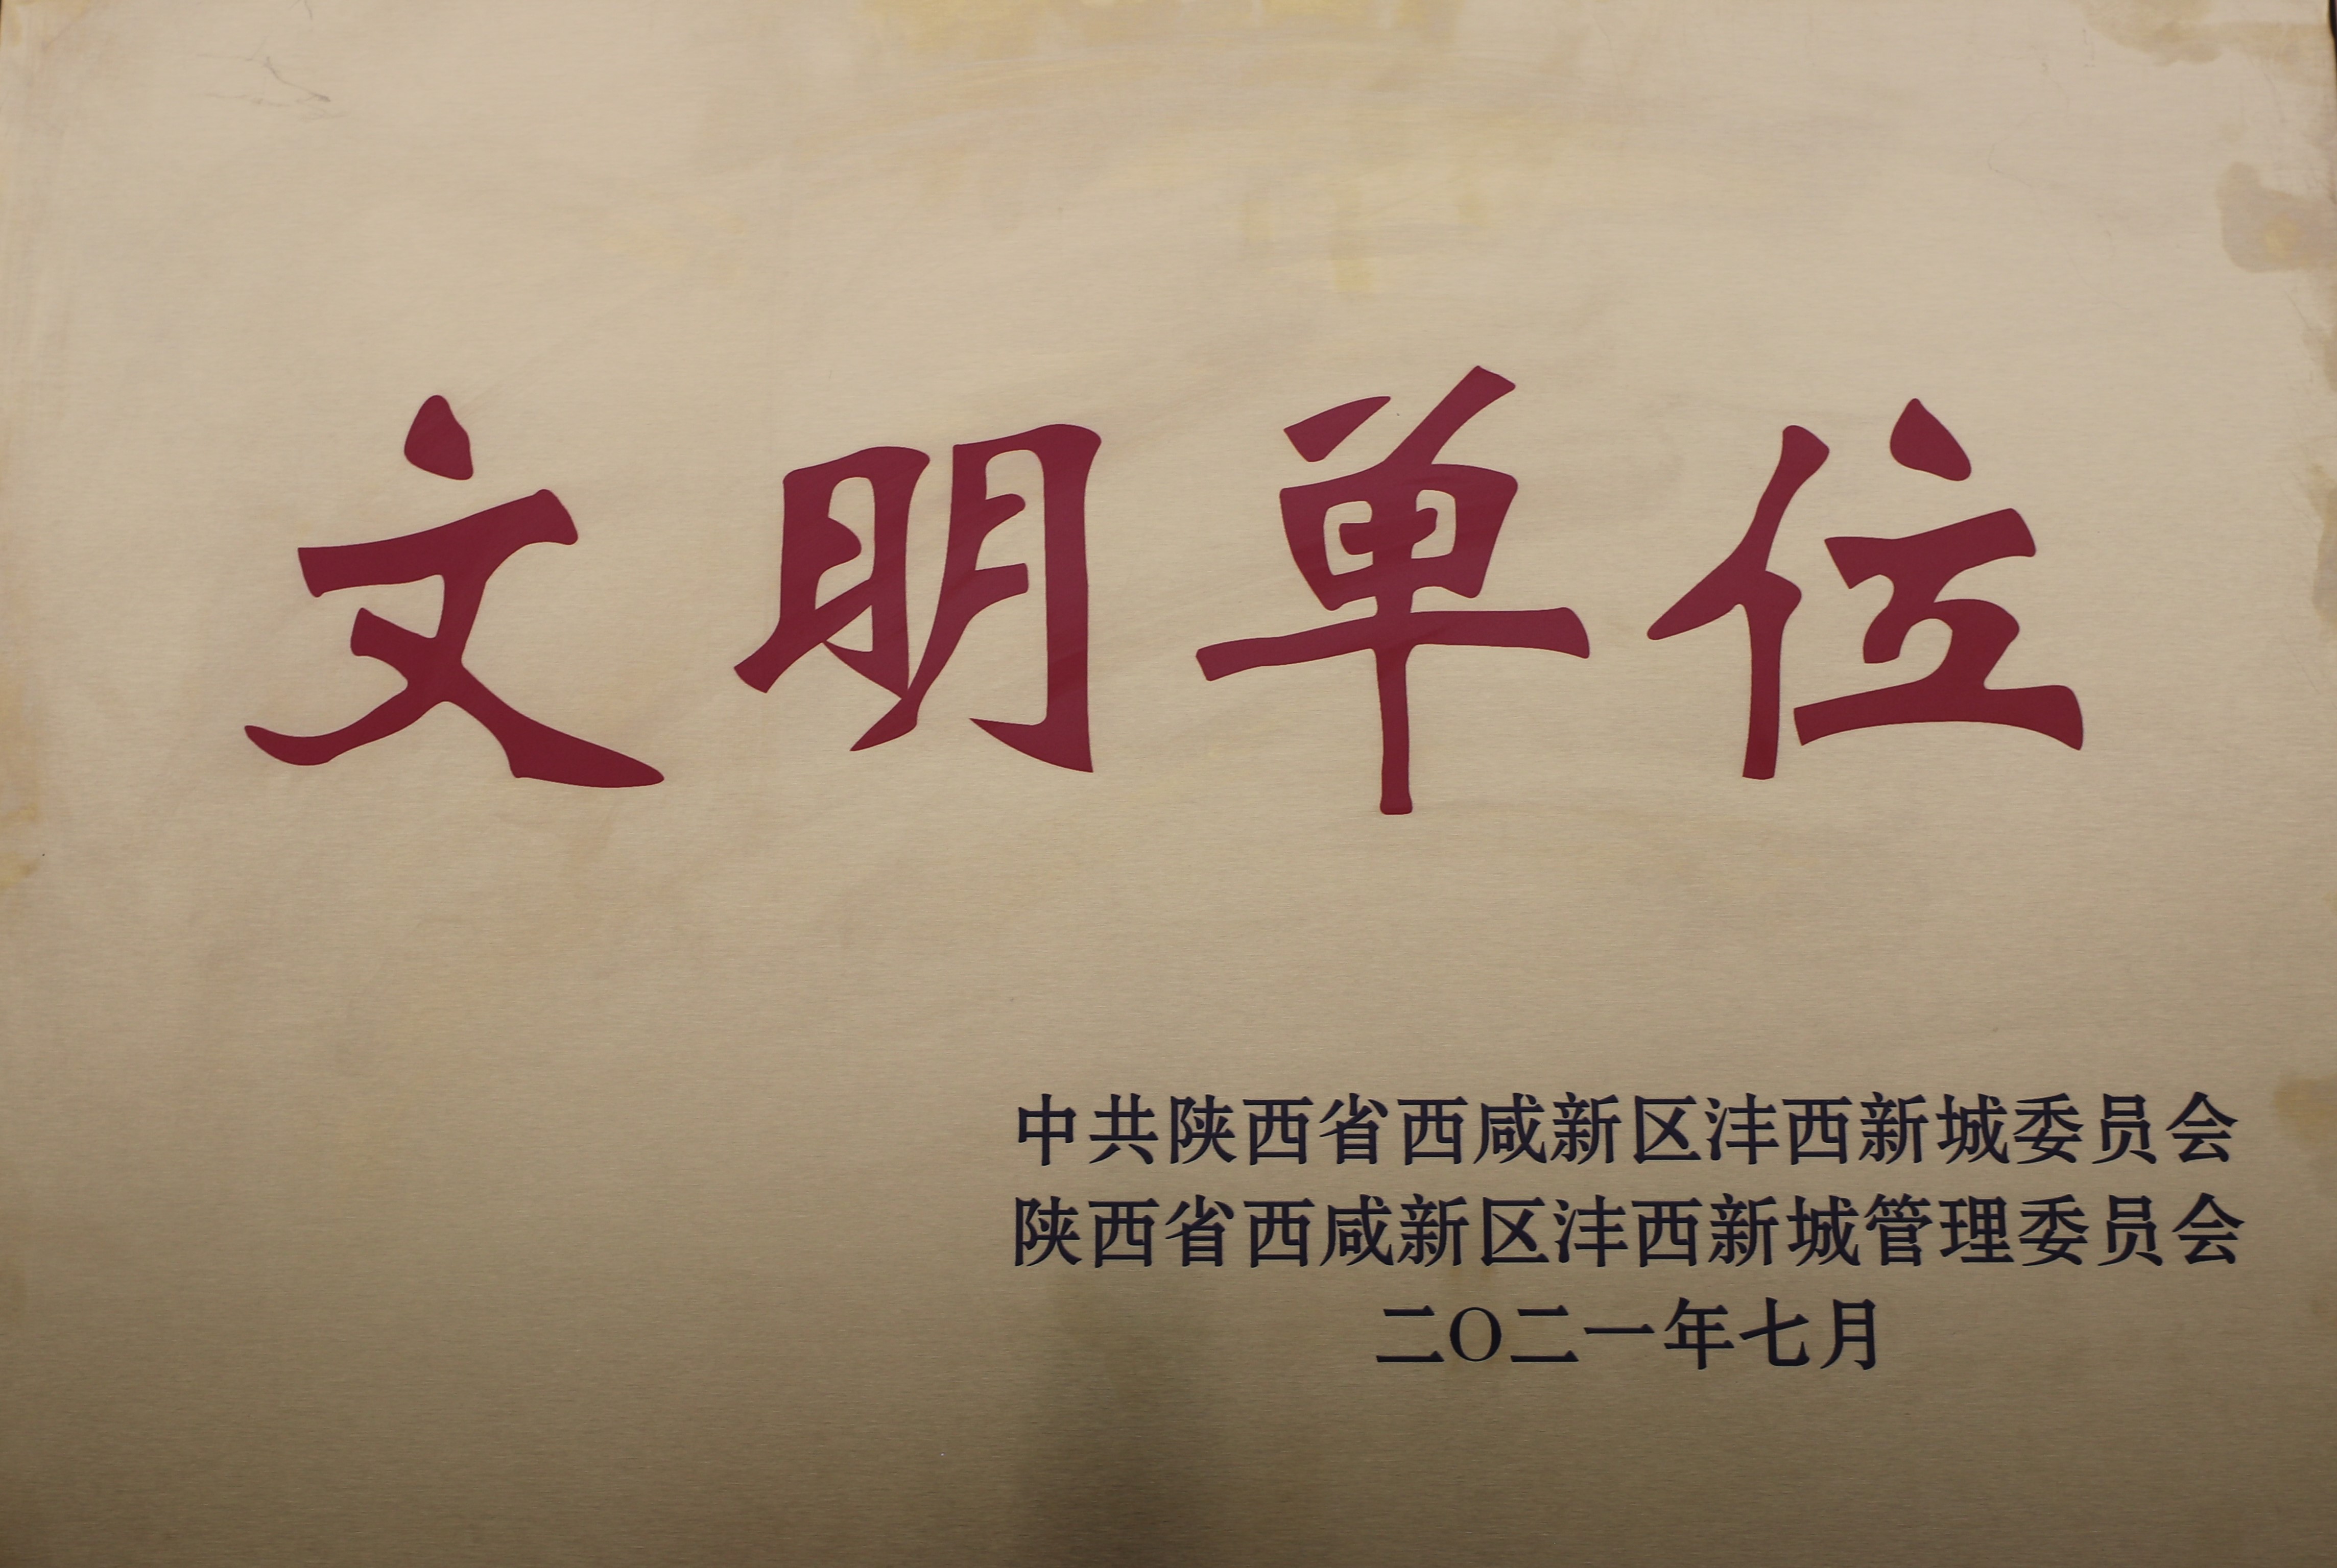 文明单位
中共陕西省西咸新区沣西新城委员会
陕西省西咸新区沣西新城管理委员会
二〇二一年七月